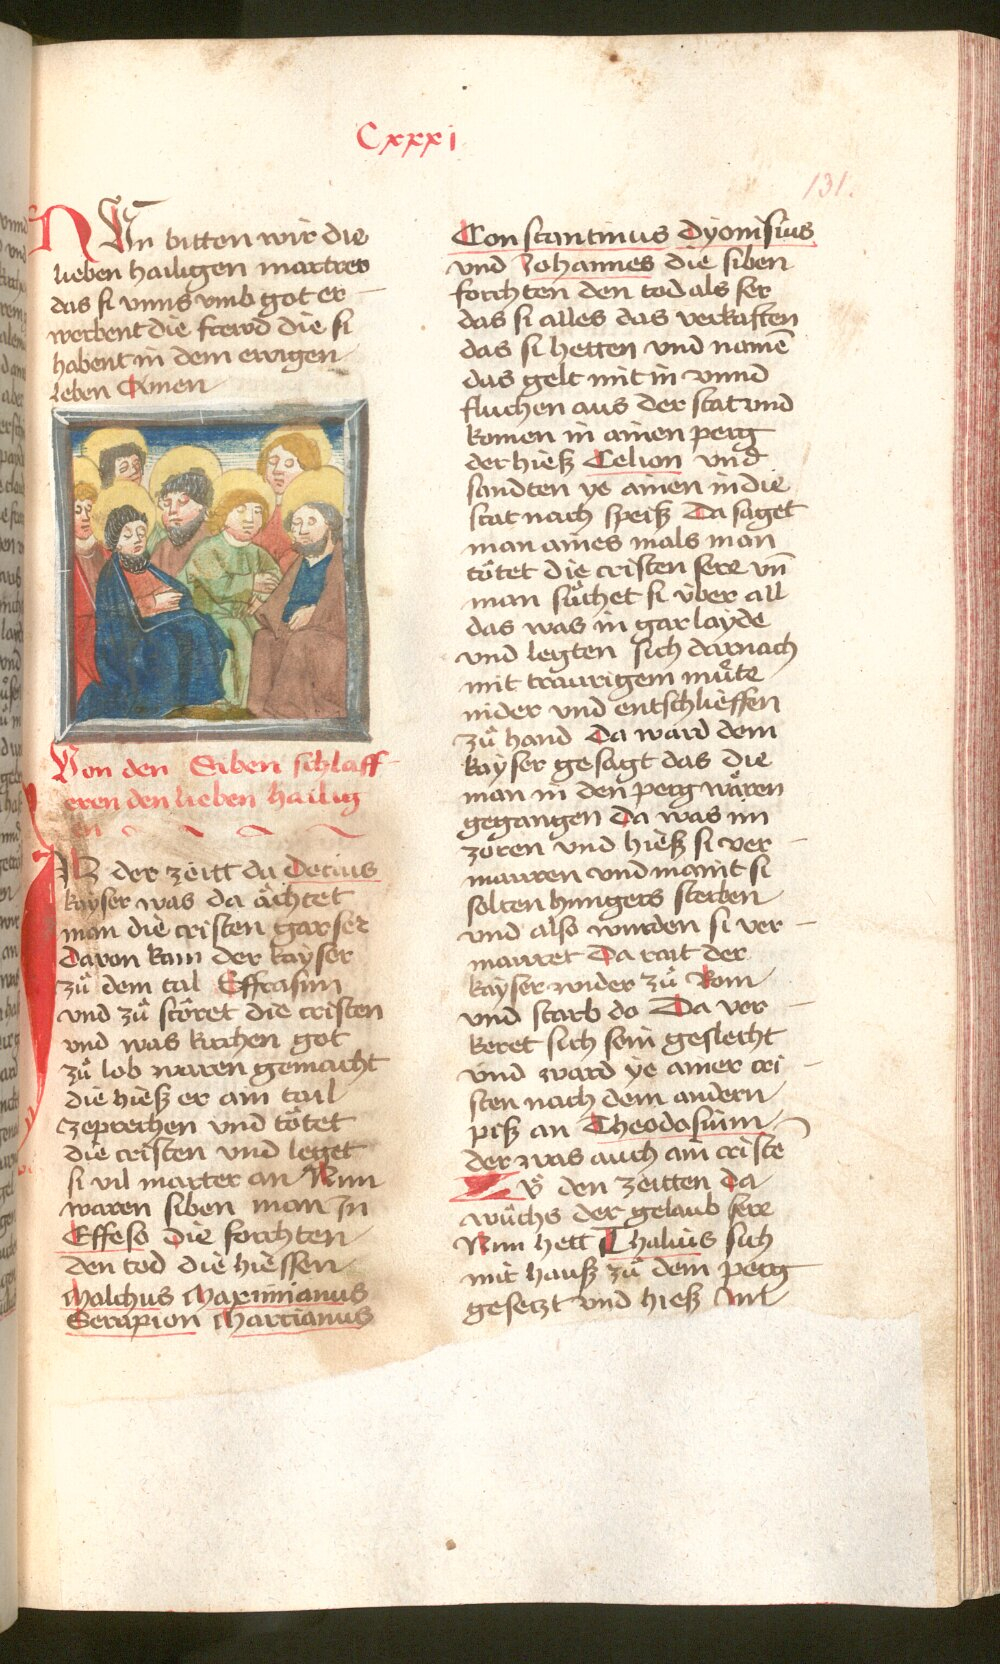 Cxxxi
131.
NUn bitten wir die
lieben hailigen martres
das si vnns vmb got er
werbent die frewd die si
habent in dem ewigen
leben Amen
Von den Siben schlaff
eren den lieben hailig
en
der zeitt da Decius
kayser was da ächtet
man die cristen gar ser
Davon kam der kayser
zů dem tal Effrasim
vnd zů störet die cristen
vnd was kirchen got
zů lob waren gemacht
die hieß er ain tail
zeprechen vnd tötet
die cristen vnd leget
si vil marter an Nun
waren siben man In
Effeso die forchten
den tod die hiessen
Malchus Maximianus
Serapion Marcianus
Constantinus Dyonisius
vnd Johannes die siben
forchten den tod als ser
das si alles das verkaften
das si hetten vnd namē
das gelt mit in vnnd
fluchen aus der stat vnd
komen in ainen perg
der hieß Celion vnd
sandten ye ainen in die
stat nach speiß Da saget
man aines mals man
tötet die cristen sere vn̄
man sůchet si über all
das was in gar layde
vnd legten sich darnach
mit traurigem můte
nider vnd entschlieffen
zů hand Da ward dem
kayser gesagt das die
man in den perg wären
gegangen Da was im
zoren vnd hieß si ver
mauren vnd maint si
solten hungers sterben
vnd also wurden si ver
mauret Da rait der
kayser wider zů Rom
vnd starb do Da ver
keret sich sein geslecht
vnd ward ye ainer cri
sten nach dem andern
piß an Theodosium
der was auch ain cristē
Zů den zeitten da
wůchs der gelaub sere
Nun hett Thalius sich
mit hauß zů dem perg
gesetzt vnd hieß